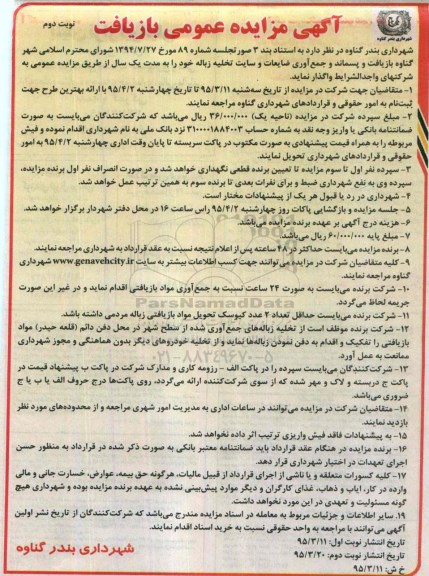 آگهی مزایده عمومی بازیافت
نوبت دوم
شهرداری بندر گناوه
شهرداری بندر گناوه در نظر دارد به استناد بند ۳ صورتجلسه شماره ۸۹ مورخ ۱۳۹۴/۷/۲۷ شورای محترم اسلامی شهر
گناوه بازیافت و پسماند و جمع آوری ضایعات و سایت تخلیه زباله خود را به مدت یک سال از طریق مزایده عمومی به
شرکتهای واجدالشرایط واگذار نماید.
۱- متقاضیان جهت شرکت در مزایده از تاریخ سه‌شنبه ۹۵/۳/۱۱ تا تاریخ چهارشنبه ۹۵/۴/۲ با ارائه بهترین طرح جهت
ثبت‌نام به امور حقوقی و قراردادهای شهرداری گناوه مراجعه نمایند.
۲- مبلغ سپرده شرکت در مزایده (ناحیه یک) ۳۶/۰۰۰/۰۰۰ ریال می‌باشد که شرکت‌کنندگان می‌بایست به صورت
ضمانتنامه بانکی یا واریز وجه نقد به شماره حساب ۳۱۰۰۰۰۱۸۸۴۰۰۳ نزد بانک ملی به نام شهرداری اقدام نموده و فیش
مربوطه را به همراه قیمت پیشنهادی به صورت مکتوب در پاکت سربسته تا پایان وقت اداری چهارشنبه ۹۵/۴/۲ به امور
حقوقی و قراردادهای شهرداری تحویل نمایند.
۳- سپرده نفر اول تا سوم مزایده تا تعیین برنده قطعی نگهداری خواهد شد و در صورت انصراف نفر اول برنده مزایده،
سپرده وی به نفع شهرداری ضبط و برای نفرات بعدی تا برنده سوم به همین ترتیب عمل خواهد شد.
۴- شهرداری در رد یا قبول هر یک از پیشنهادات مختار است.
۵- جلسه مزایده و بازگشایی پاکات روز چهارشنبه ۹۵/۴/۲ راس ساعت ۱۶ در محل دفتر شهردار برگزار خواهد شد.
۶- هزینه درج آگهی بر عهده برنده مزایده می‌باشد.
۷- مبلغ پایه ۶۰/۰۰۰/۰۰۰ ریال می‌باشد.
۸- برنده مزایده می‌بایست حداکثر در ۴۸ ساعته پس از اعلام نتیجه نسبت به عقد قرارداد به شهرداری مراجعه نمایند.
۹- کلیه متقاضیان شرکت در مزایده می‌توانند جهت کسب اطلاعات بیشتر به سایت www.genavehcity.ir شهرداری
گناوه مراجعه نمایند.
۱۰- شرکت برنده می‌بایست به صورت ۲۴ ساعت نسبت به جمع‌آوری مواد بازیافتی اقدام نماید و در غیر این صورت
جریمه لحاظ می‌گردد.
۱۱- شرکت برنده می‌بایست حداقل تعداد ۲ عدد کیوسک تحویل مواد بازیافتی زباله مردمی داشته باشد.
۱۲- شرکت برنده موظف است از تخلیه زباله‌های جمع آوری شده از سطح شهر در محل دفن دائم (قلعه حیدر) مواد
بازیافتی را تفکیک و اقدام به دفن نمودن زباله‌ها نماید و از تخلیه خودروهای دیگر بدون هماهنگی و مجوز شهرداری
ممانعت به عمل آورد.
۱۳- شرکت‌کنندگان می‌بایست سپرده را در پاکت الف - رزومه کاری و مدارک شرکت در پاکت ب پیشنهاد قیمت در
پاکت ج دربسته و لاک و مهر شده که از سوی شرکت‌کننده ارائه می‌گردد، روی پاکت‌ها درج حروف الف یا ب یا ج
ضروری می‌باشد.
۱۴- متقاضیان شرکت در مزایده می‌توانند در ساعات اداری به مدیریت امور شهری مراجعه و از محدوده‌های مورد نظر
بازدید نمایند.
۱۵- به پیشنهادات فاقد فیش واریزی ترتیب اثر داده نخواهد شد.
۱۶- برنده مزایده در هنگام عقد قرارداد باید ضمانتنامه معتبر بانکی به صورت ذکر شده در قرارداد به منظور حسن
اجرای تعهدات در اختیار شهرداری قرار دهد.
۱۷- کلیه کسورات متعلقه و یا ناشی از اجرای قرارداد از قبیل مالیات، هرگونه حق بیمه، عوارض، خسارت جانی و مالی
وارده در کار، ایاب و ذهاب، غذای کارگران و دیگر موارد پیش‌بینی نشده به عهده برنده مزایده بوده و شهرداری هیچ
گونه مسئولیت و تعهدی در این مورد نخواهد داشت.
۱۹. سایر اطلاعات و جزئیات مربوط به معامله در اسناد مزایده مندرج می‌باشد که شرکت‌کنندگان از تاریخ نشر اولین
آگهی می‌توانند با مراجعه به واحد حقوقی نسبت به خرید اسناد اقدام نمایند.
تاریخ انتشار نوبت اول: ۹۵/۳/۱۱
تاریخ انتشار نوبت دوم: ۹۵/۳/۲۰
خ ش: ۹۵/۳/۱۱
شهرداری بندر گناوه
ParsNamadData
۰۲۱-۸۸۳۴۹۶۷۰-۵